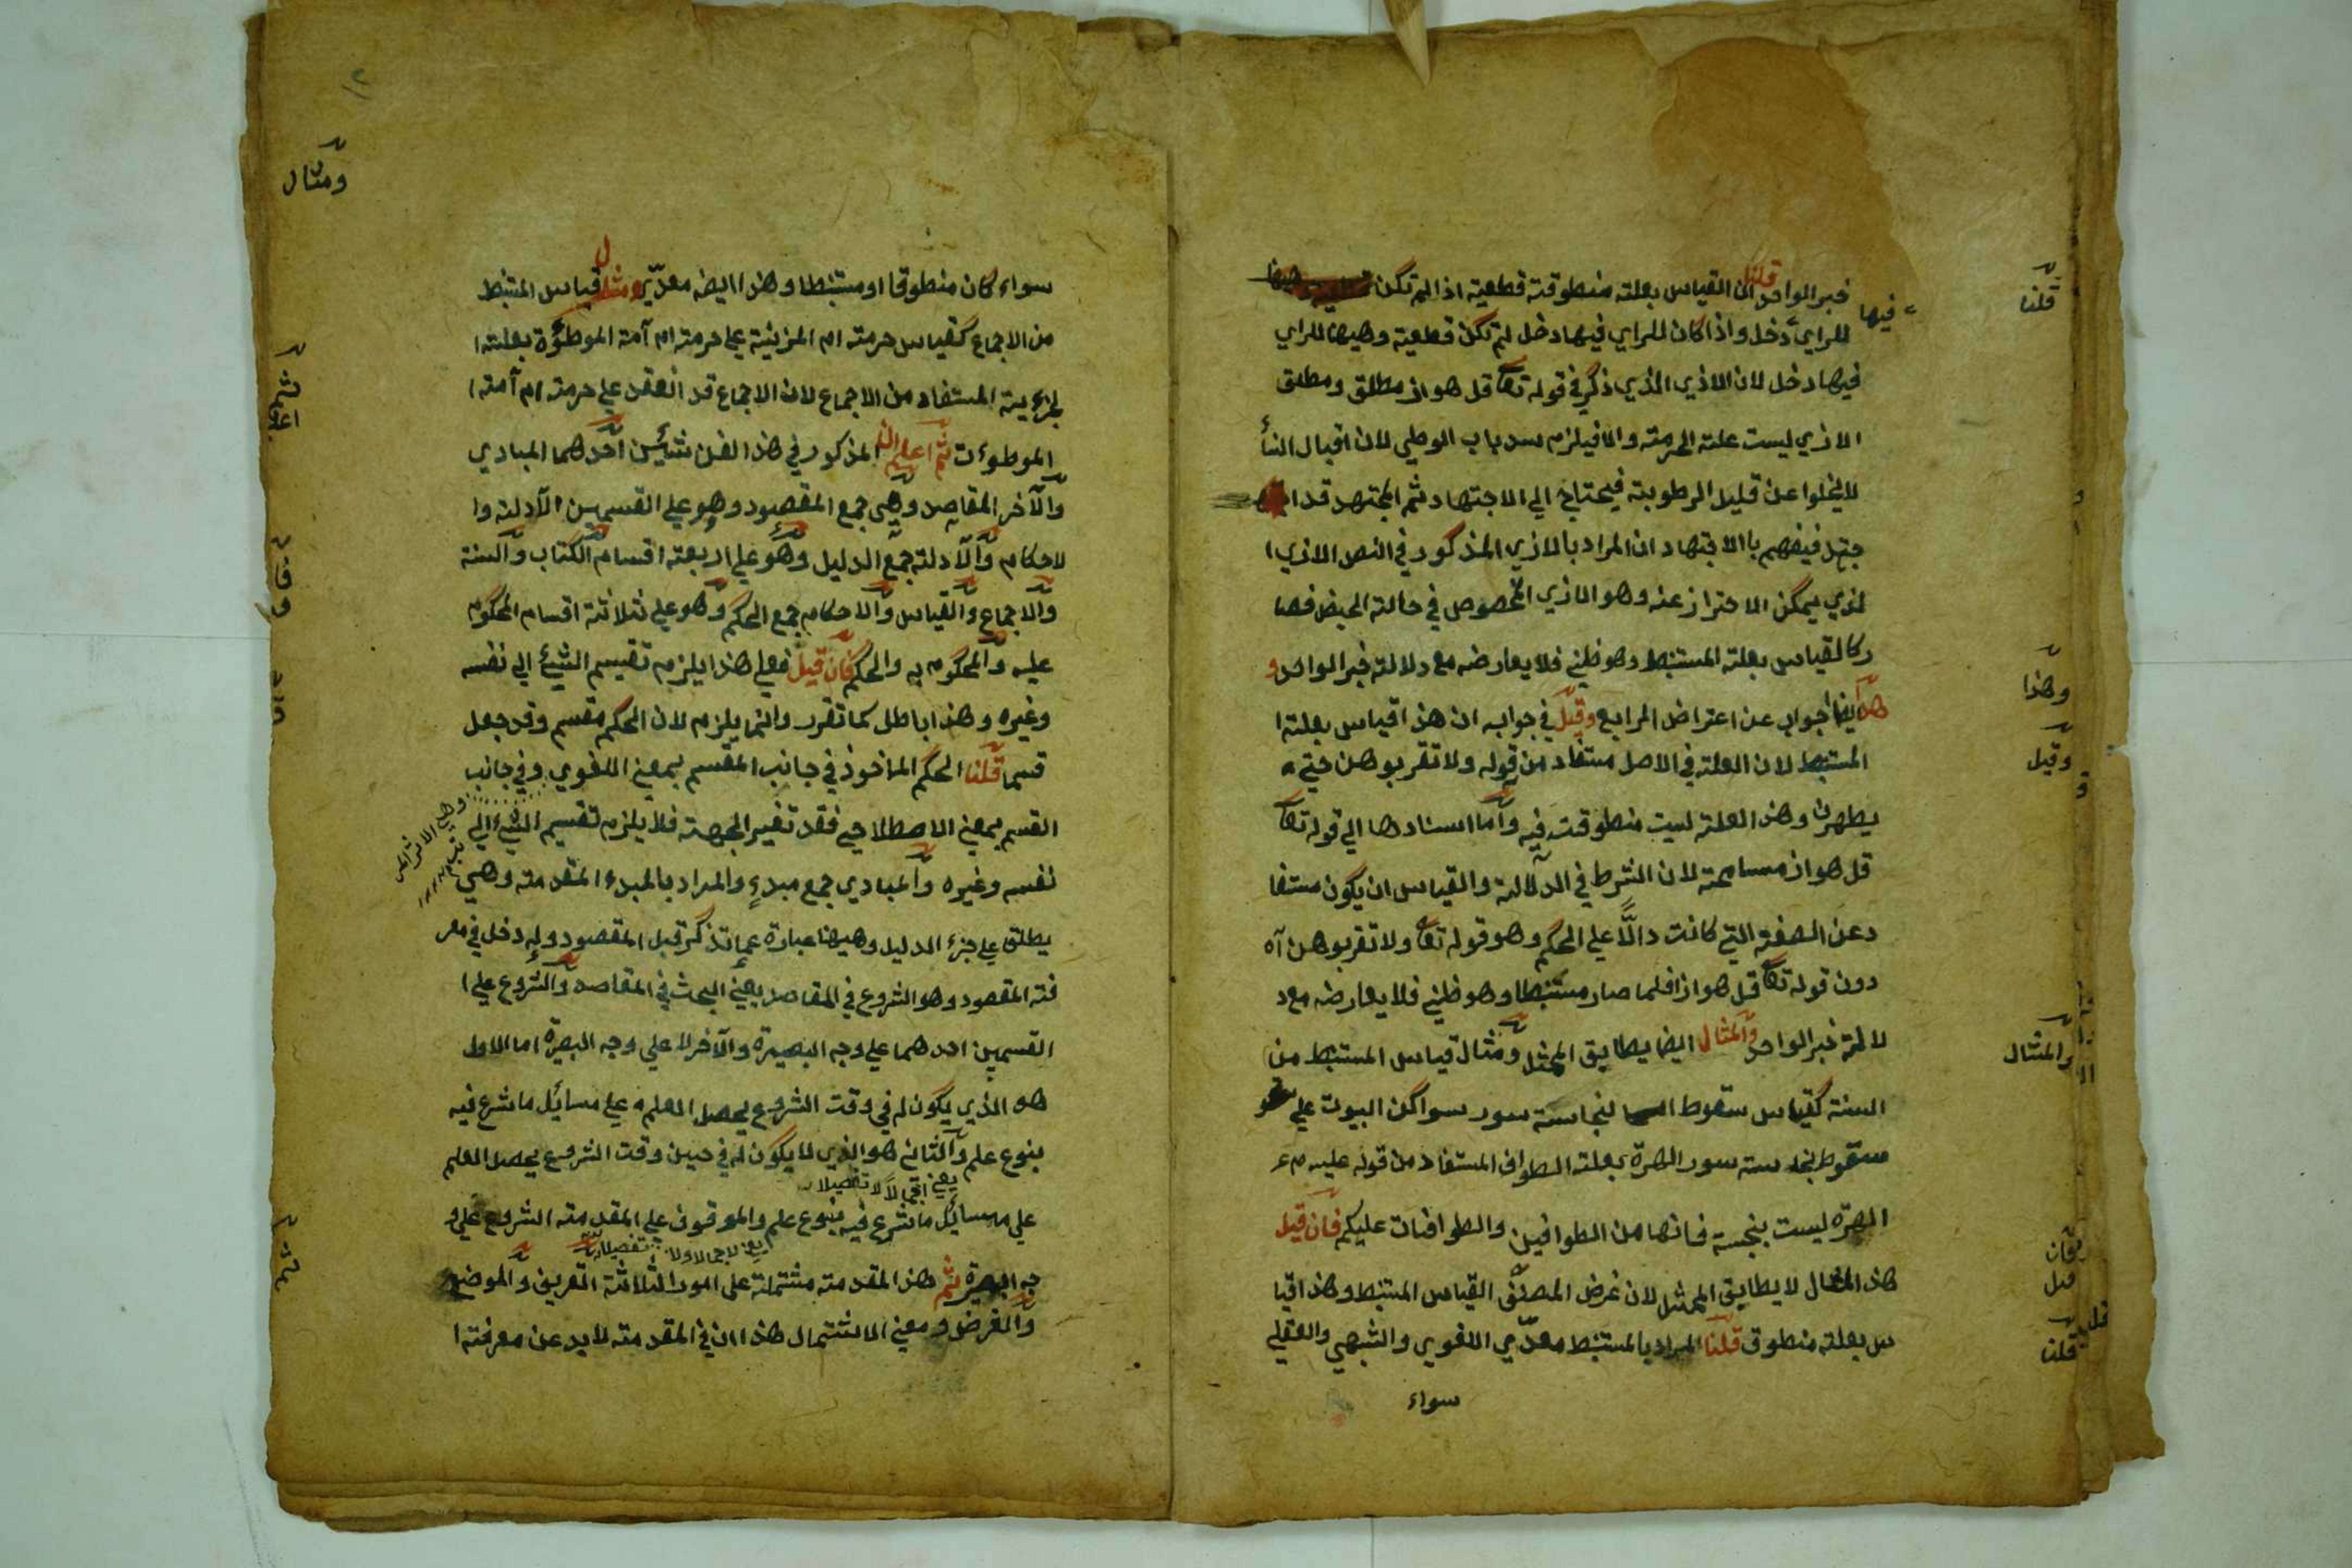 خبر الواحد قلنا ان القياس بعلته منطوقته قطعية اذا لم تكن
فيها
للراي دخل واذا كان للراي فيها دخل لم تكن قطعية وههنا للراي
فيها دخل لان الاذي الذي ذكر في قوله تعا قل هو اذ مطلق ومطلق
الاذي ليست علته الحرمته والا فيلزم سد باب الوطي لان اقبال النسأ
لا يخلوا عن قليل الرطوبته فيحتاج الي الاجتهاد ثم المجتهد قد ا
جتهد فيفهم با الاجتهاد ان المراد بالاذي المذكور في النص الاذي ا
لذي يمكن الاحتراز عنه وهو الاذي المخصوص في حالته الحيض فصا
ركالقياس بعلته المستنبط وهو ظني فلا يعارضه مع دلالته خبر الواحد و
هذا ايضا جواب عن اعتراض الرابع وقيل في جوابه ان هذا قياس بعلته ا
المستنبط لان العلته في الاصل مستفاد من قوله ولا تقربوهن حتي
يطهرن وهذه العلته ليست منطوقته فيه واما اسنادها الي قوله تعا
قل هو اذ مسامحته لان الشرط في الدلالته والقياس ان يكون مستفا
دعن الصفته التي كانت دالًّا علي الحكم وهو قوله تعا ولا تقربوهن آه
دون قوله تعا قل هو اذا فلما صار مستنبطا وهو ظني فلا يعارضه مع د
لالته خبر الواحد والمثال ايضا يطابق الممثل ومثال قياس المستنبط من
السنته كقياس سقوط نجاسته سور سواكن البيوت علي
سقوط نجاسته سور الهرة بعلته الطواف المستفاد من قوله عليه م ع
الهرة ليست بنجسته فانها من الطوافين والطوافات عليكم فان قيل
هذا المثال لا يطابق الممثل لان غرض المصنف القياس المستنبط وهذا قيا
س بعلته منطوق قلنا المراد بالمستنبط معدّي اللغوي والشبهي والعقلي
سواء
قلنا
وهذا
وقيل
والمثال
فان
قيل
قلنا
سواء كان منطوقا او مستنبطا وهذا ايضه معدّي ومثال قياس المستنبط
من الاجماع كقياس حرمته ام المزنيته علي حرمته ام آمته الموطؤة بعلته ا
لجزءيته المستفاد من الاجماع لان الاجماع قد انعقد علي حرمته ام آمته ا
الموطوءت ثم اعلم ان المذكور في هذا الفن شيئين احدهما المبادي
والآخر المقاصد وهي جمع المقصود وهو علي القسمين الآدلته وا
لاحكام والآدلته جمع الدليل وهو علي اربعته اقسام الكتاب والسنة
والاجماع والقياس والاحكام جمع الحكم وهو علي ثلاثته اقسام المحكوم
عليه والمحكوم به والحكم فان قيل فعلي هذا يلزم تقسيم الشيئ الي نفسه
وغيره وهذا باطل كما تقرر وانما يلزم لان الحكم مقسم وقد جعل
قسما قلنا الحكم الماخوذ في جانب المقسم بمعني اللغوي وفي جانب
القسم بمعني الاصطلاحي فقد تغير الجهته فلا يلزم تقسيم الشيء الي
نفسه وغيره والمبادي جمع مبدءٍ والمراد بالمبدء المقدمته وهي
يطلق علي جزء الدليل وههنا عبارة عما تذكر قبل المقصود وله دخل في معر
فته المقصود وهو الشروع في المقاصد يعني البحث في المقاصد والشروع علي ا
القسمين احدهما علي وجه البصيرة والآخر لا علي وجه البصيرة اما الاول
هو الذي يكون له في وقت الشروع يحصل العلم علي مسائل ما شرع فيه
بنوع علم والثاني هو الذي لا يكون له في حين وقت الشروع يحصل العلم
يعني اجمالاً لا تفصيلا
علي مسائل ما شرع فيه بنوع علم والموقوف علي المقدمته الشروع علي و
يعني لا اجمالا ولا تفصيلا
جه البصيرة ثم هذه المقدمته مشتملته علي امور الثلاثته التعريف والموضوع
والغرض ومعني الاشتمال هذا ان في المقدمته لابد عن معرفته ا
١٢
ومثال
ثم
اعلم
فان
ثم